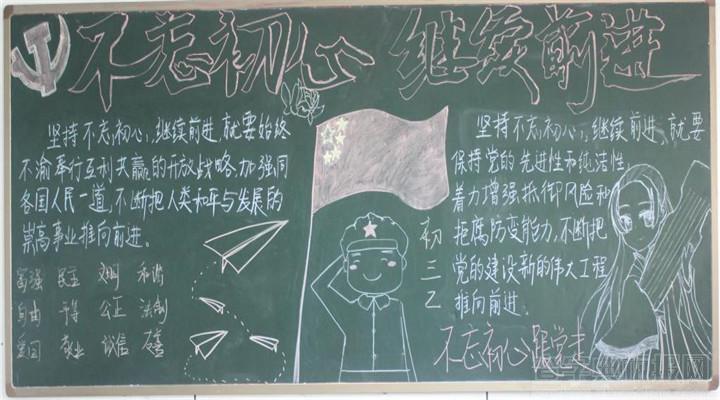 不忘初心 继续前进
坚持不忘初心,继续前进,就要始终
不渝奉行互利共赢的开放战略,加强同
各国人民一道,不断把人类和平与发展的
崇高事业推向前进。
富强 民主 文明 和谐
自由 平等 公正 法制
爱国 敬业 诚信 友善
初
三
乙
坚持不忘初心,继续前进,就要
保持党的先进性和纯洁性,
着力增强抵御风险和
拒腐防变能力,不断把
党的建设新的伟大工程
推向前进。
不忘初心跟党走